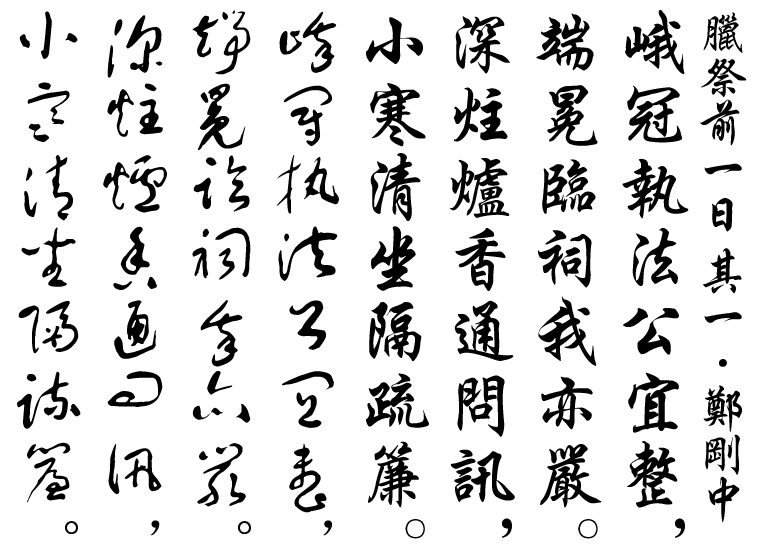 臘祭前一日其一·鄭剛中
峨冠執法公宜整，
端冕臨祠我亦嚴。
深炷爐香通問訊，
小寒清坐隔疏簾。
峨冠執法公宜整，
端冕臨祠我亦嚴。
深炷爐香通問訊，
小寒清坐隔疏簾。